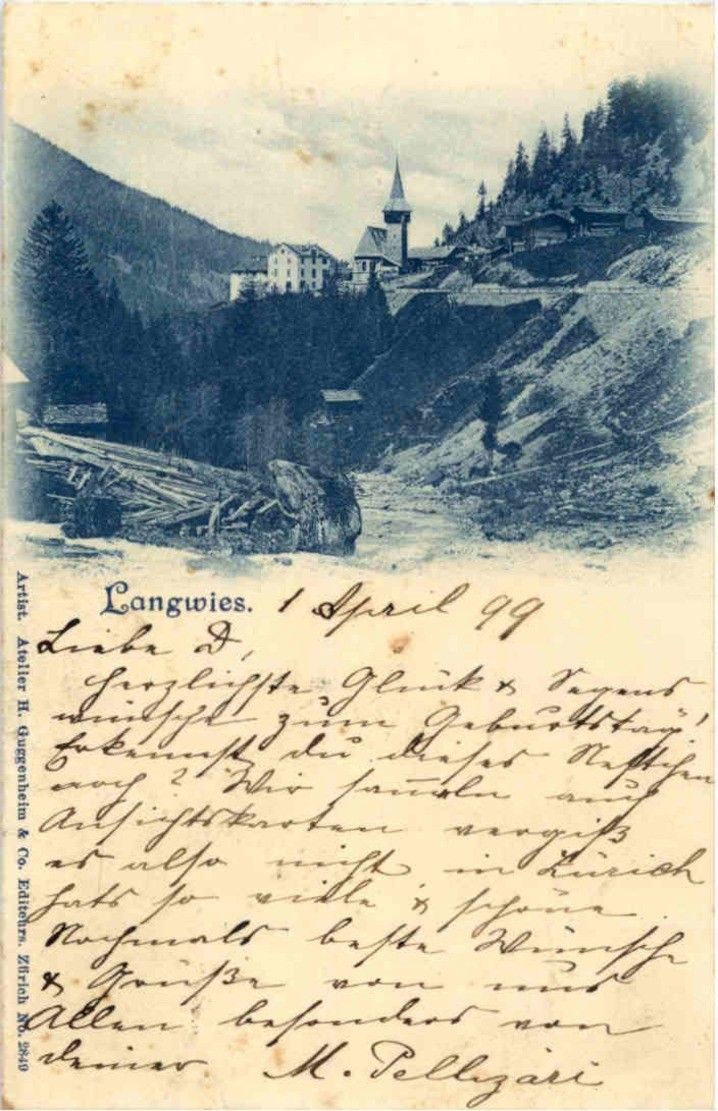 Langwies. 1 April 99
Liebe D,
herzlichste Glück & Segens
wünsche zum Geburtstag!
Erkennst du dieses Nestchen
noch? Wir sam̅eln auch
Ansichtskarten vergiß
es also nicht in Zürich
hats so viele & schöne
Nochmals beste Wünsche
& Grüße von uns
Allen besonders von
deiner M. Pellizari
Artist. Atelier H. Guggenheim & Co. Editeurs. Zürich No. 2849